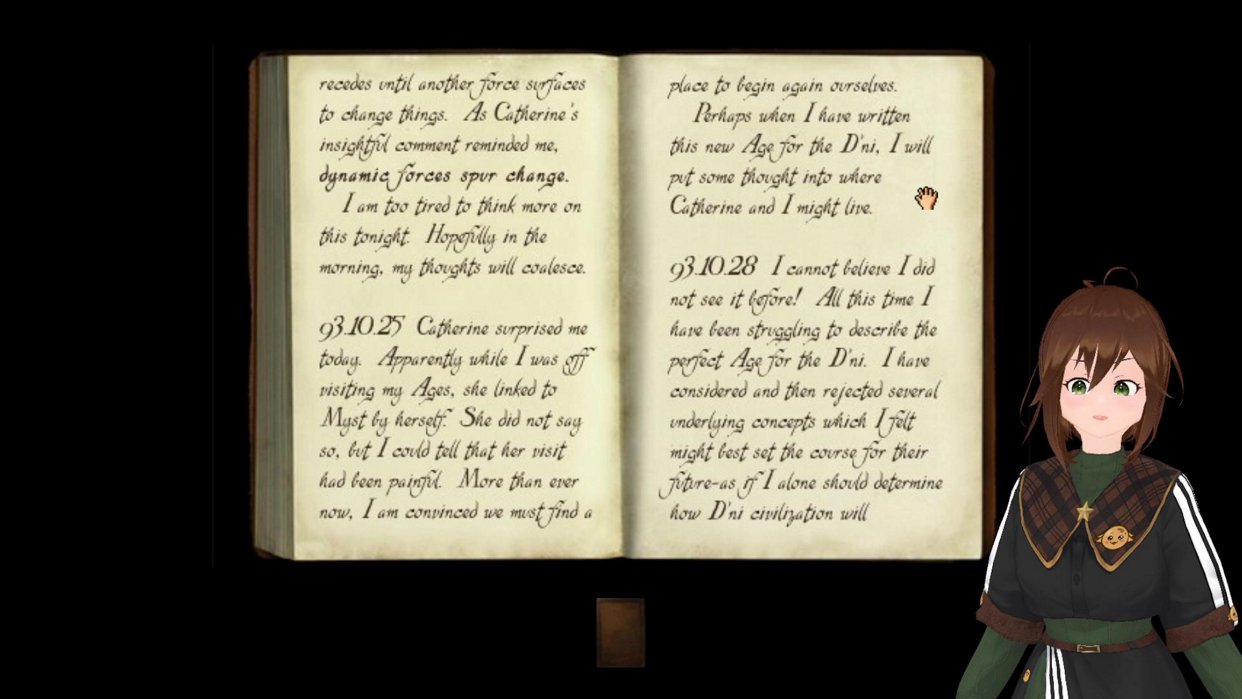 recedes until another force surfaces
to change things. As Catherine's
insightful comment reminded me,
dynamic forces spur change.
I am too tired to think more on
this tonight. Hopefully in the
morning, my thoughts will coalesce.
93.10.25 Catherine surprised me
today. Apparently while I was off
visiting my Ages, she linked to
Myst by herself. She did not say
so, but I could tell that her visit
had been painful. More than ever
now, I am convinced we must find a
place to begin again ourselves.
Perhaps when I have written
this new Age for the D'ni, I will
put some thought into where
Catherine and I might live.
93.10.28 I cannot believe I did
not see it before! All this time I
have been struggling to describe the
perfect Age for the D'ni. I have
considered and then rejected several
underlying concepts which I felt
might best set the course for their
future-as if I alone should determine
how D'ni civilization will